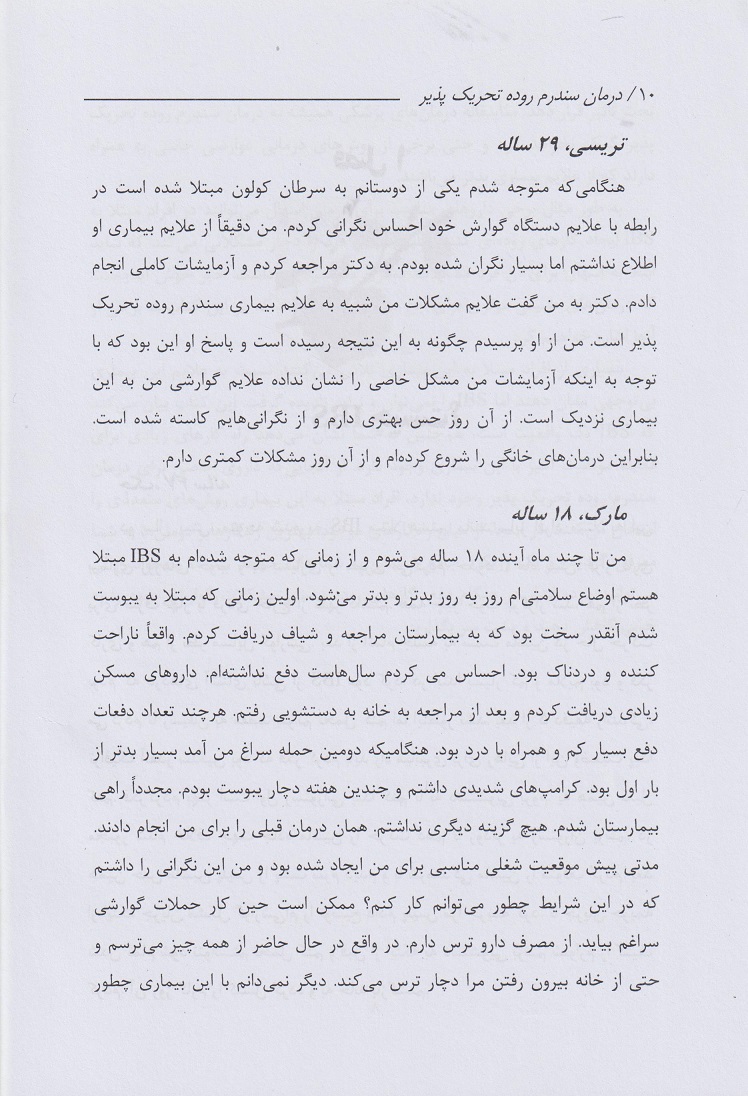 ۱۰/ درمان سندرم روده تحریک پذیر
تریسی، ۲۹ ساله
هنگامی‌که متوجه شدم یکی از دوستانم به سرطان کولون مبتلا شده است در
رابطه با علایم دستگاه گوارش خود احساس نگرانی کردم. من دقیقاً از علایم بیماری او
اطلاع نداشتم اما بسیار نگران شده بودم. به دکتر مراجعه کردم و آزمایشات کاملی انجام
دادم. دکتر به من گفت علایم مشکلات من شبیه به علایم بیماری سندرم روده تحریک
پذیر است. من از او پرسیدم چگونه به این نتیجه رسیده است و پاسخ او این بود که با
توجه به اینکه آزمایشات من مشکل خاصی را نشان نداده علایم گوارشی من به این
بیماری نزدیک است. از آن روز حس بهتری دارم و از نگرانی‌هایم کاسته شده است.
بنابراین درمان‌های خانگی را شروع کرده‌ام و از آن روز مشکلات کمتری دارم.
مارک، ۱۸ ساله
من تا چند ماه آینده ۱۸ ساله می‌شوم و از زمانی که متوجه شده‌ام به IBS مبتلا
هستم اوضاع سلامتی‌ام روز به روز بدتر و بدتر می‌شود. اولین زمانی که مبتلا به یبوست
شدم آنقدر سخت بود که به بیمارستان مراجعه و شیاف دریافت کردم. واقعاً ناراحت
کننده و دردناک بود. احساس می کردم سال‌هاست دفع نداشته‌ام. داروهای مسکن
زیادی دریافت کردم و بعد از مراجعه به خانه به دستشویی رفتم. هرچند تعداد دفعات
دفع بسیار کم و همراه با درد بود. هنگامیکه دومین حمله سراغ من آمد بسیار بدتر از
بار اول بود. کرامپ‌های شدیدی داشتم و چندین هفته دچار یبوست بودم. مجدداً راهی
بیمارستان شدم. هیچ گزینه دیگری نداشتم. همان درمان قبلی را برای من انجام دادند.
مدتی پیش موقعیت شغلی مناسبی برای من ایجاد شده بود و من این نگرانی را داشتم
که در این شرایط چطور می‌توانم کار کنم؟ ممکن است حین کار حملات گوارشی
سراغم بیاید. از مصرف دارو ترس دارم. در واقع در حال حاضر از همه چیز می‌ترسم و
حتی از خانه بیرون رفتن مرا دچار ترس می‌کند. دیگر نمی‌دانم با این بیماری چطور